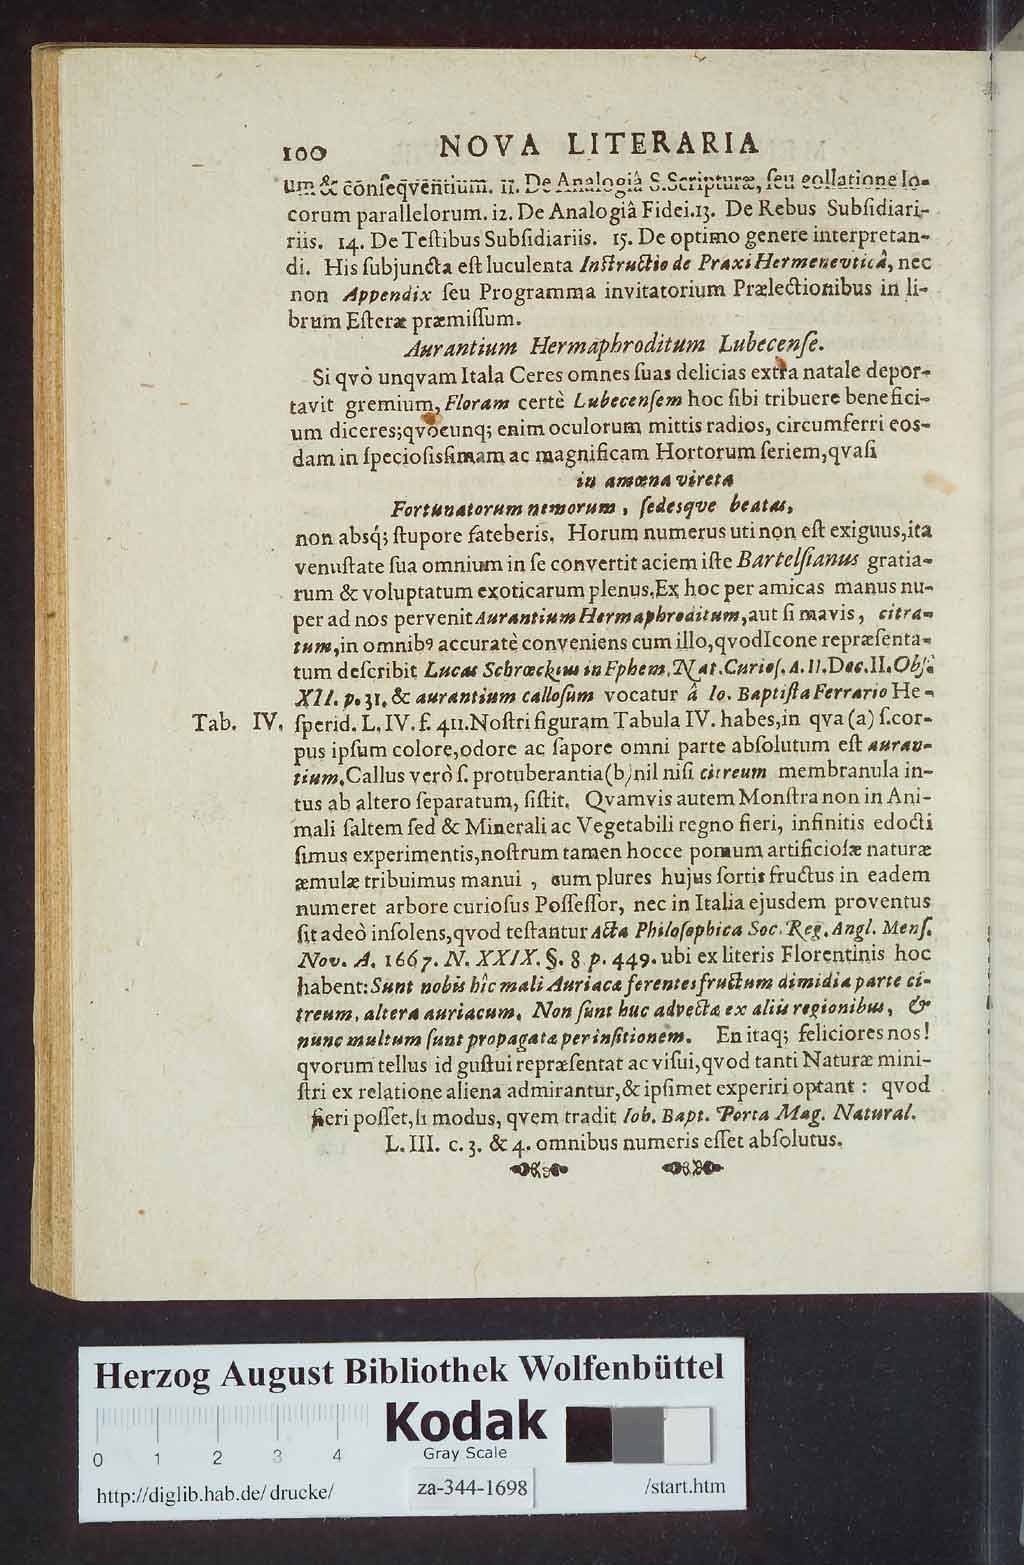 100 NOVA LITERARIA
um & conſeqventium. 11. De Analogiâ S. Scripturæ, ſeu collatione lo-
corum parallelorum. 12. De Analogiâ Fidei. 13. De Rebus Subſidiari-
riis. 14. De Teſtibus Subſidiariis. 15. De optimo genere interpretan-
di. His ſubjuncta eſt luculenta Inſtructio de Praxi Hermenevticâ, nec
non Appendix ſeu Programma invitatorium Prælectionibus in li-
brum Eſteræ præmiſſum.
Aurantium Hermaphroditum Lubecenſe.
Si qvò unqvam Itala Ceres omnes ſuas delicias extra natale depor-
tavit gremium, Floram certè Lubecenſem hoc ſibi tribuere benefici-
um diceres; qvocunq; enim oculorum mittis radios, circumferri eos-
dam in ſpecioſisſimam ac magnificam Hortorum ſeriem, qvaſi
in amœna vireta
Fortunatorum nemorum, ſedesqve beatas,
non absq́; ſtupore fateberis. Horum numerus uti non eſt exiguus, ita
venuſtate ſua omnium in ſe convertit aciem iſte Bartelſianus gratia-
rum & voluptatum exoticarum plenus. Ex hoc per amicas manus nu-
per ad nos pervenit Aurantium Hermaphroditum, aut ſi mavis, citra-
tum, in omnibꝰ accuratè conveniens cum illo, qvod Icone repræſenta-
tum deſcribit Lucas Schrœckius in Ephem. Nat. Curioſ. A. II. Dec. II. Obſ.
XII. p. 31. & aurantium calloſum vocatur â Io. Baptiſta Ferrario He-
Tab. IV. ſperid. L. IV. f. 411. Noſtri figuram Tabula IV. habes, in qva (a) ſ. cor-
pus ipſum colore, odore ac ſapore omni parte abſolutum eſt auran-
tium. Callus verò ſ. protuberantia (b) nil niſi citreum membranula in-
tus ab altero ſeparatum, ſiſtit. Qvamvis autem Monſtra non in Ani-
mali ſaltem ſed & Minerali ac Vegetabili regno fieri, infinitis edocti
ſimus experimentis, noſtrum tamen hocce pomum artificioſæ naturæ
æmulæ tribuimus manui, cum plures hujus ſortis fructus in eadem
numeret arbore curioſus Poſſeſſor, nec in Italia ejusdem proventus
ſit adeò inſolens, qvod teſtantur Acta Philoſophica Soc. Reg. Angl. Menſ.
Nov. A. 1667. N. XXIX. §. 8 p. 449. ubi ex literis Florentinis hoc
habent: Sunt nobis hîc mali Auriaca ferentes fructum dimidia parte ci-
treum, altera auriacum. Non ſunt huc advecta ex aliis regionibus, &
nunc multum ſunt propagata per inſitionem. En itaq; feliciores nos!
qvorum tellus id guſtui repræſentat ac viſui, qvod tanti Naturæ mini-
ſtri ex relatione aliena admirantur, & ipſimet experiri optant: qvod
fieri poſſet, ſi modus, qvem tradit Iob. Bapt. Porta Mag. Natural.
L. III. c. 3. & 4. omnibus numeris eſſet abſolutus.
Herzog August Bibliothek Wolfenbüttel
Kodak
Gray Scale
0 1 2 3 4
http://diglib.hab.de/drucke/ za-344-1698 /start.htm